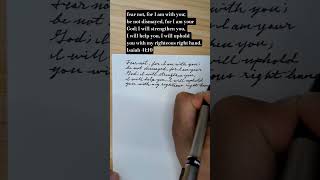 fear not, for I am with you;
be not dismayed, for I am your
God; I will strengthen you,
I will help you, I will uphold
you with my righteous right hand.
Isaiah 41:10
Fear not, for I am with you;
be not dismayed, for I am your
God; I will strengthen you,
I will help you, I will uphold
you with my righteous right hand